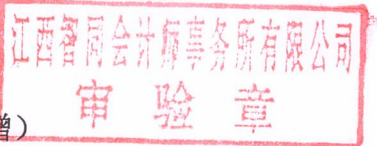 江西智同会计师事务所有限公司
审验章
增）